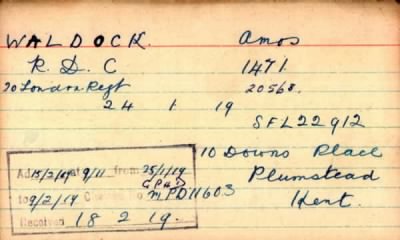 WALDOCK. Amos
R. D. C 1471
20 London Regt 20568.
24 1 19
SFL22912
10 Downs Place
Plumstead
Kent.
15/2/19 9/11 from 25/1/19
to 9/2/19 MPD11603
Received 18 2 19.